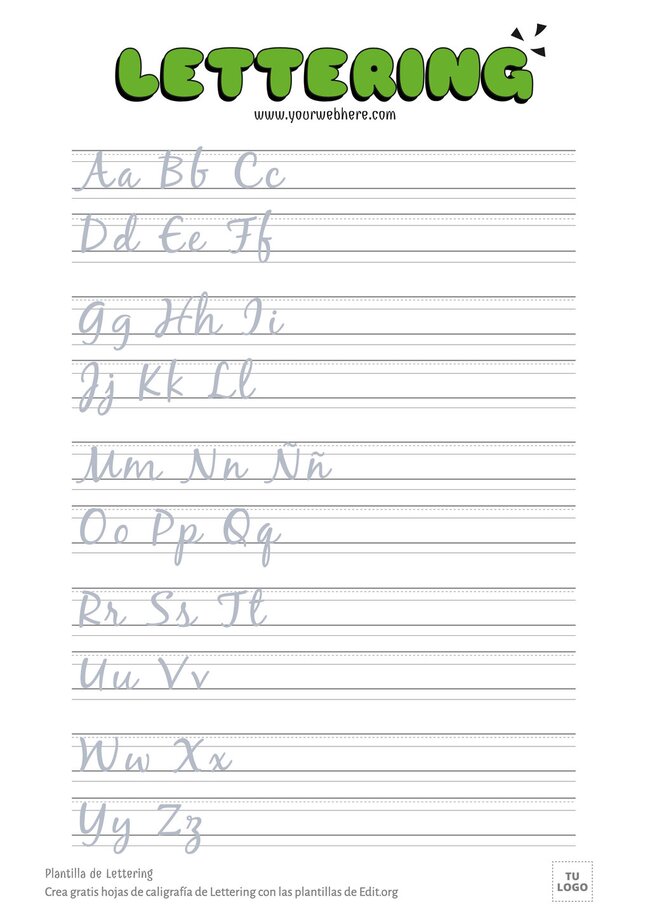 LETTERING
www.yourwebhere.com
Aa Bb Cc
Dd Ee Ff
Gg Hh Ii
Jj Kk Ll
Mm Nn Ññ
Oo Pp Qq
Rr Ss Tt
Uu Vv
Ww Xx
Yy Zz
Plantilla de Lettering
Crea gratis hojas de caligrafía de Lettering con las plantillas de Edit.org
TU
LOGO